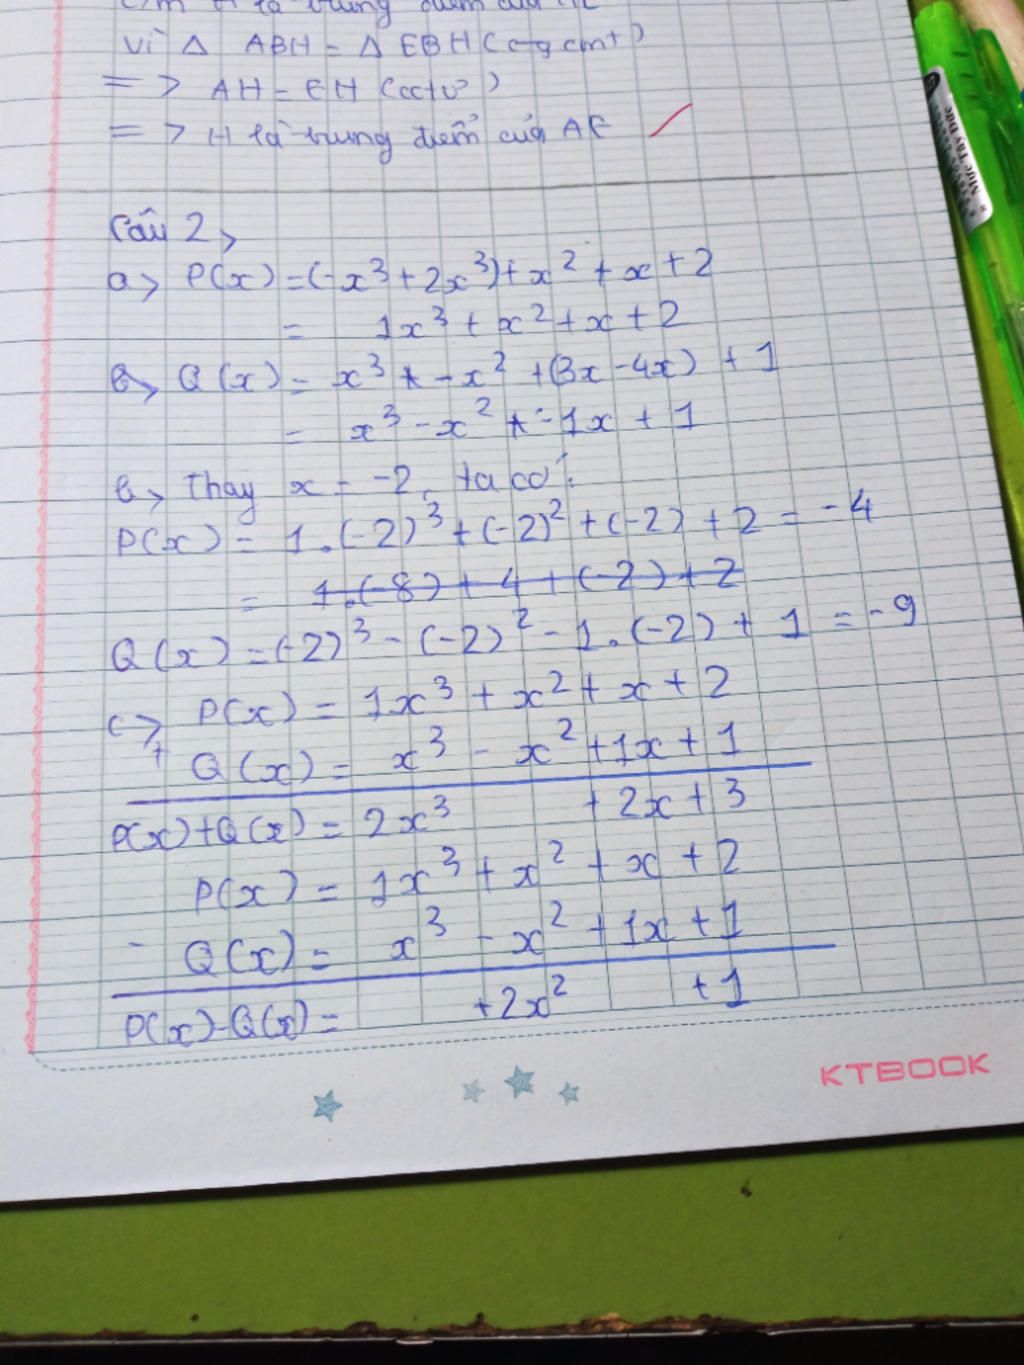 c/m H là trung điểm của AE
Vì △ ABH = △ EBH (c-g cmt)
=> AH = EH (cctứ)
=> H là trung điểm của AE
Câu 2,
a> P(x) = (-x³ + 2x³) + x² + x + 2
= 1x³ + x² + x + 2
b> Q(x) = x³ + - x² + (3x - 4x) + 1
= x³ - x² + - 1x + 1
b> Thay x = -2, ta có:
P(x) = 1.(-2)³ + (-2)² + (-2) + 2 = -4
= 1.(-8) + 4 + (-2) + 2
Q(x) = (-2)³ - (-2)² - 1.(-2) + 1 = -9
c> P(x) = 1x³ + x² + x + 2
+ Q(x) = x³ - x² + 1x + 1
P(x)+Q(x) = 2x³ + 2x + 3
P(x) = 1x³ + x² + x + 2
- Q(x) = x³ - x² + 1x + 1
P(x)-Q(x) = +2x² + 1
KTBOOK
Mực Tẩy Được